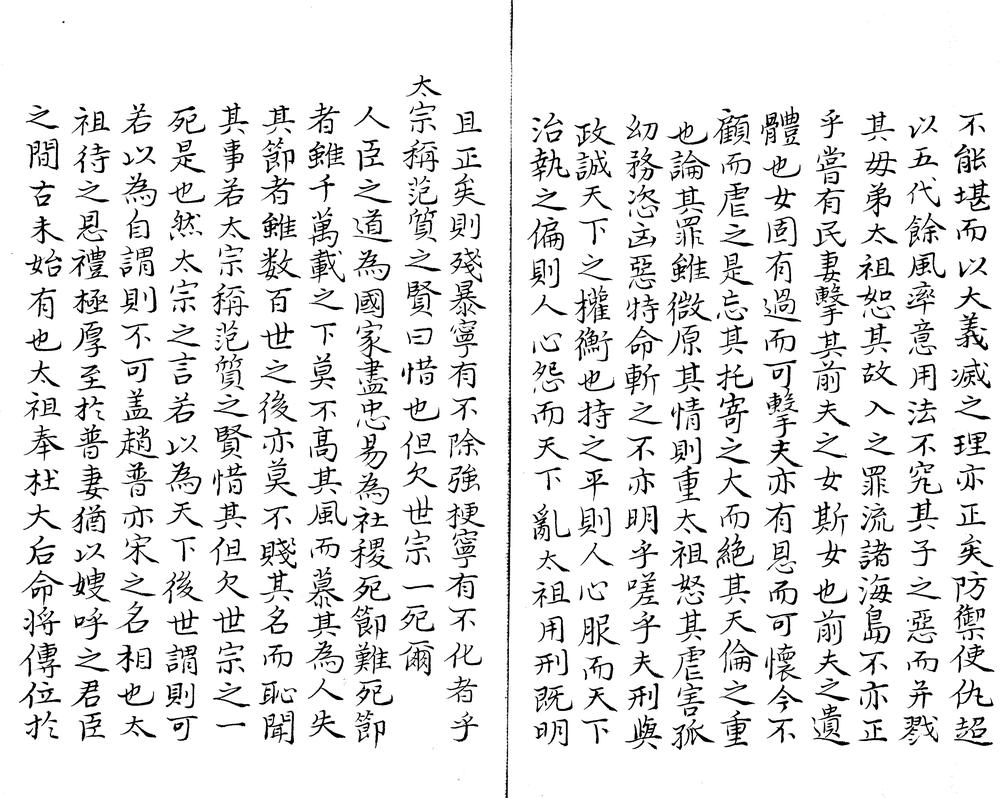 不能堪而以大義滅之理亦正矣防禦使仇超
以五代餘風率意用法不究其子之惡而并戮
其母弟太祖恕其故入之罪流諸海島不亦正
乎嘗有民妻擊其前夫之女斯女也前夫之遺
體也女固有過而可擊夫亦有恩而可懷今不
顧而虐之是忘其托寄之大而絶其天倫之重
也論其罪雖微原其情則重太祖怒其虐害孤
幼務恣凶惡特命斬之不亦明乎嗟乎夫刑與
政誠天下之權衡也持之平則人心服而天下
治執之偏則人心怨而天下亂太祖用刑既明
且正矣則殘暴寧有不除強梗寧有不化者乎
太宗稱范質之賢曰惜也但欠世宗一死爾
人臣之道為國家盡忠易為社稷死節難死節
者雖千萬載之下莫不高其風而慕其為人失
其節者雖数百世之後亦莫不賤其名而恥聞
其事若太宗稱范質之賢惜其但欠世宗之一
死是也然太宗之言若以為天下後世謂則可
若以為自謂則不可盖趙普亦宋之名相也太
祖待之恩禮極厚至扵普妻猶以嫂呼之君臣
之間古未始有也太祖奉杜大后命将傳位扵